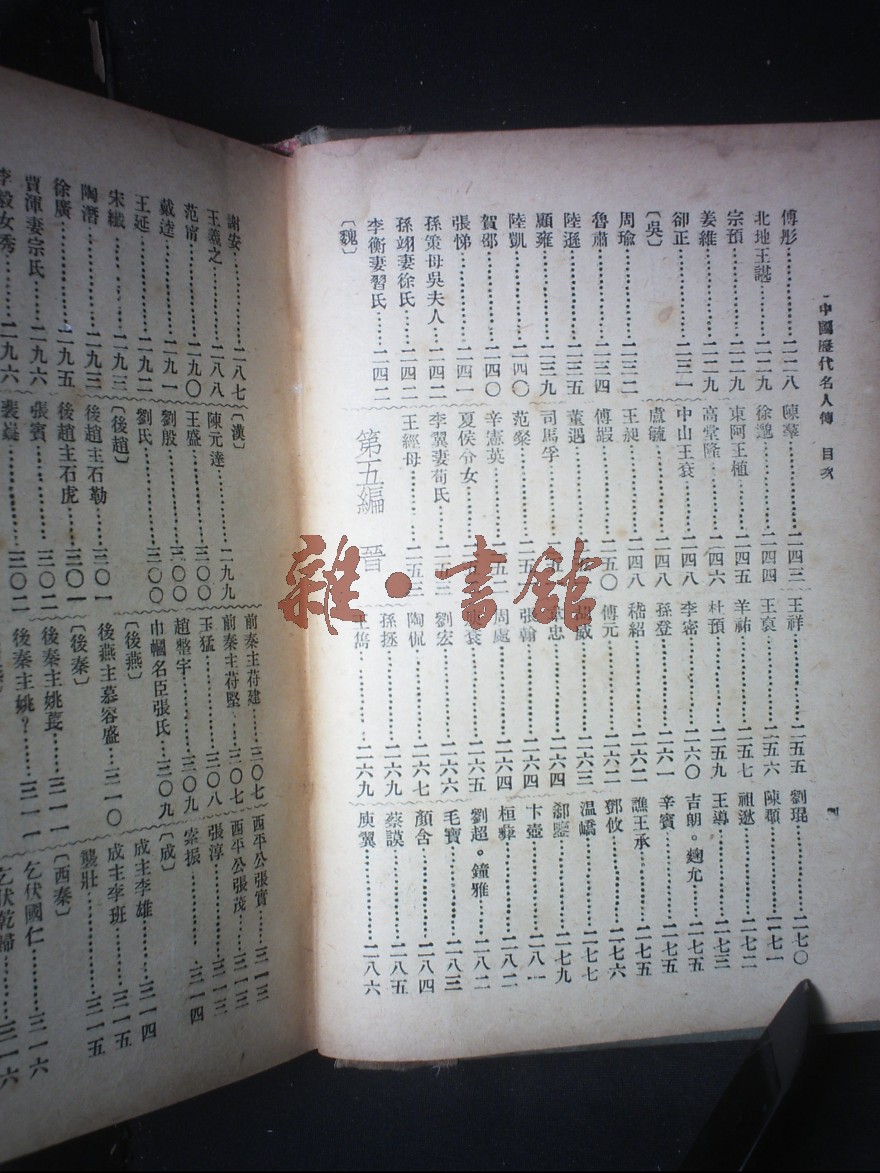 中國歷代名人傳　目次
傅彤………二二八
北地王諶………二二九
宗預………二二九
姜維………二二九
卻正………二三一
〔吳〕
周瑜………二三二
魯肅………二三四
陸遜………二三五
顧雍………二三九
陸凱………二四〇
賀邵………二四〇
張悌………二四一
孫策母吳夫人………二四二
孫翊妻徐氏………二四二
李衡妻習氏………二四二
〔魏〕
陳羣………二四三
徐邈………二四四
東阿王植………二四五
高堂隆………二四六
中山王袞………二四八
盧毓………二四八
王昶………二四八
傅嘏………二五〇
董遇
司馬孚
范粲
辛憲英
夏侯令女
李翼妻荀氏
王經母………二五三
第五編　晉
王祥………二五五
王裒………二五六
羊祜………二五七
杜預………二五九
李密………二六〇
孫登………二六一
嵇紹………二六二
傅元………二六二
威………二六三
忠………二六四
張翰………二六四
周處………二六四
袞………二六五
劉宏………二六六
陶侃………二六七
孫拯………二六九
王雋………二六九
劉琨………二七〇
陳頵………二七一
祖逖………二七二
王導………二七三
吉朗。麴允………二七五
辛賓………二七五
譙王承………二七五
鄧攸………二七六
温嶠………二七七
郗鑒………二七九
卞壺………二八一
桓彝………二八二
劉超。鐘雅………二八二
毛寶………二八三
顏含………二八四
蔡謨………二八五
庾翼………二八六
謝安………二八七
王羲之………二九〇
范甯………二九一
戴逵………二九一
王延………二九二
宋纖………二九三
陶潛………二九三
徐廣………二九五
賈渾妻宗氏………二九六
李毅女秀………二九六
〔漢〕
陳元達………二九九
王盛………三〇〇
劉殷………三〇〇
劉氏………三〇〇
〔後趙〕
後趙主石勒………三〇一
後趙主石虎………三〇一
張賓………三〇二
裴嶷………三〇二
前秦主苻建………三〇七
前秦主苻堅………三〇七
王猛………三〇八
趙整宇………三〇九
巾幗名臣張氏………三〇九
〔後燕〕
後燕主慕容盛………三一〇
〔後秦〕
後秦主姚萇………三一一
後秦主姚？………三一一
西平公張實………三一三
西平公張茂………三一三
張淳………三一三
索振………三一四
〔成〕
成主李雄………三一四
成主李班………三一五
龔壯………三一五
〔西秦〕
乞伏國仁………三一六
乞伏乾歸………三一六
雜·書館